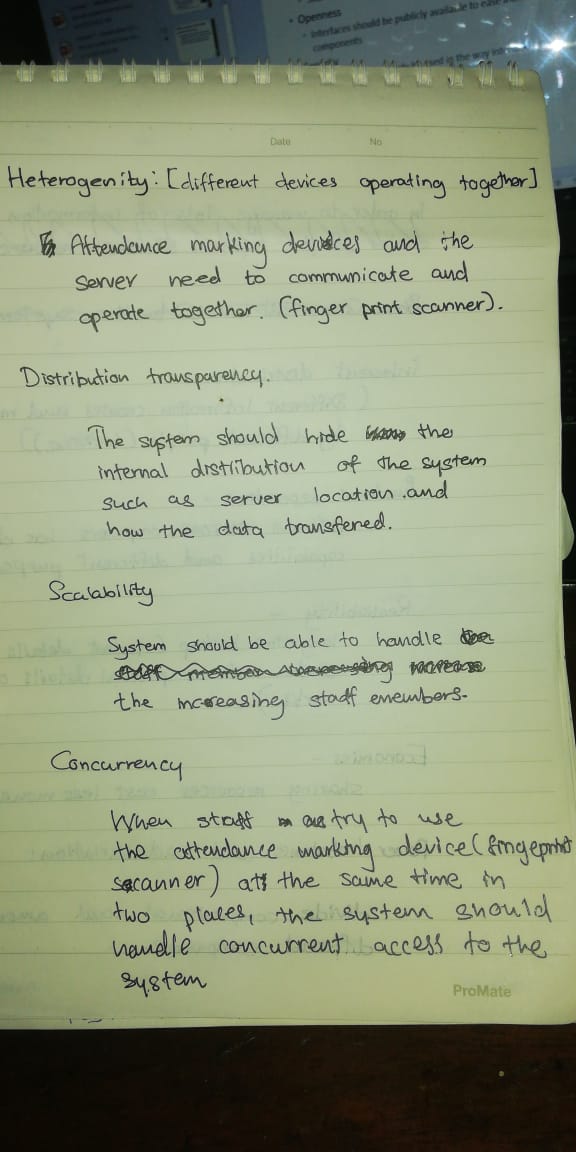 • Openness
• Interfaces should be publicly available to ease
components
in the way
Date No
Heterogenity: [different devices operating together]
Attendance marking devices and the
server need to communicate and
operate together. (finger print scanner).
Distribution transparency.
The system should hide the
internal distribution of the system
such as server location .and
how the data transfered.
Scalability
System should be able to handle
the increasing staff emembers.
Concurrency
When staff try to use
the attendance marking device (fingeprint
scanner) at the same time in
two places, the system should
handle concurrent access to the
system
ProMate